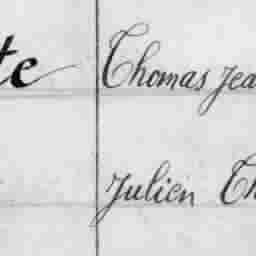 te Thomas Jea
Julien Th